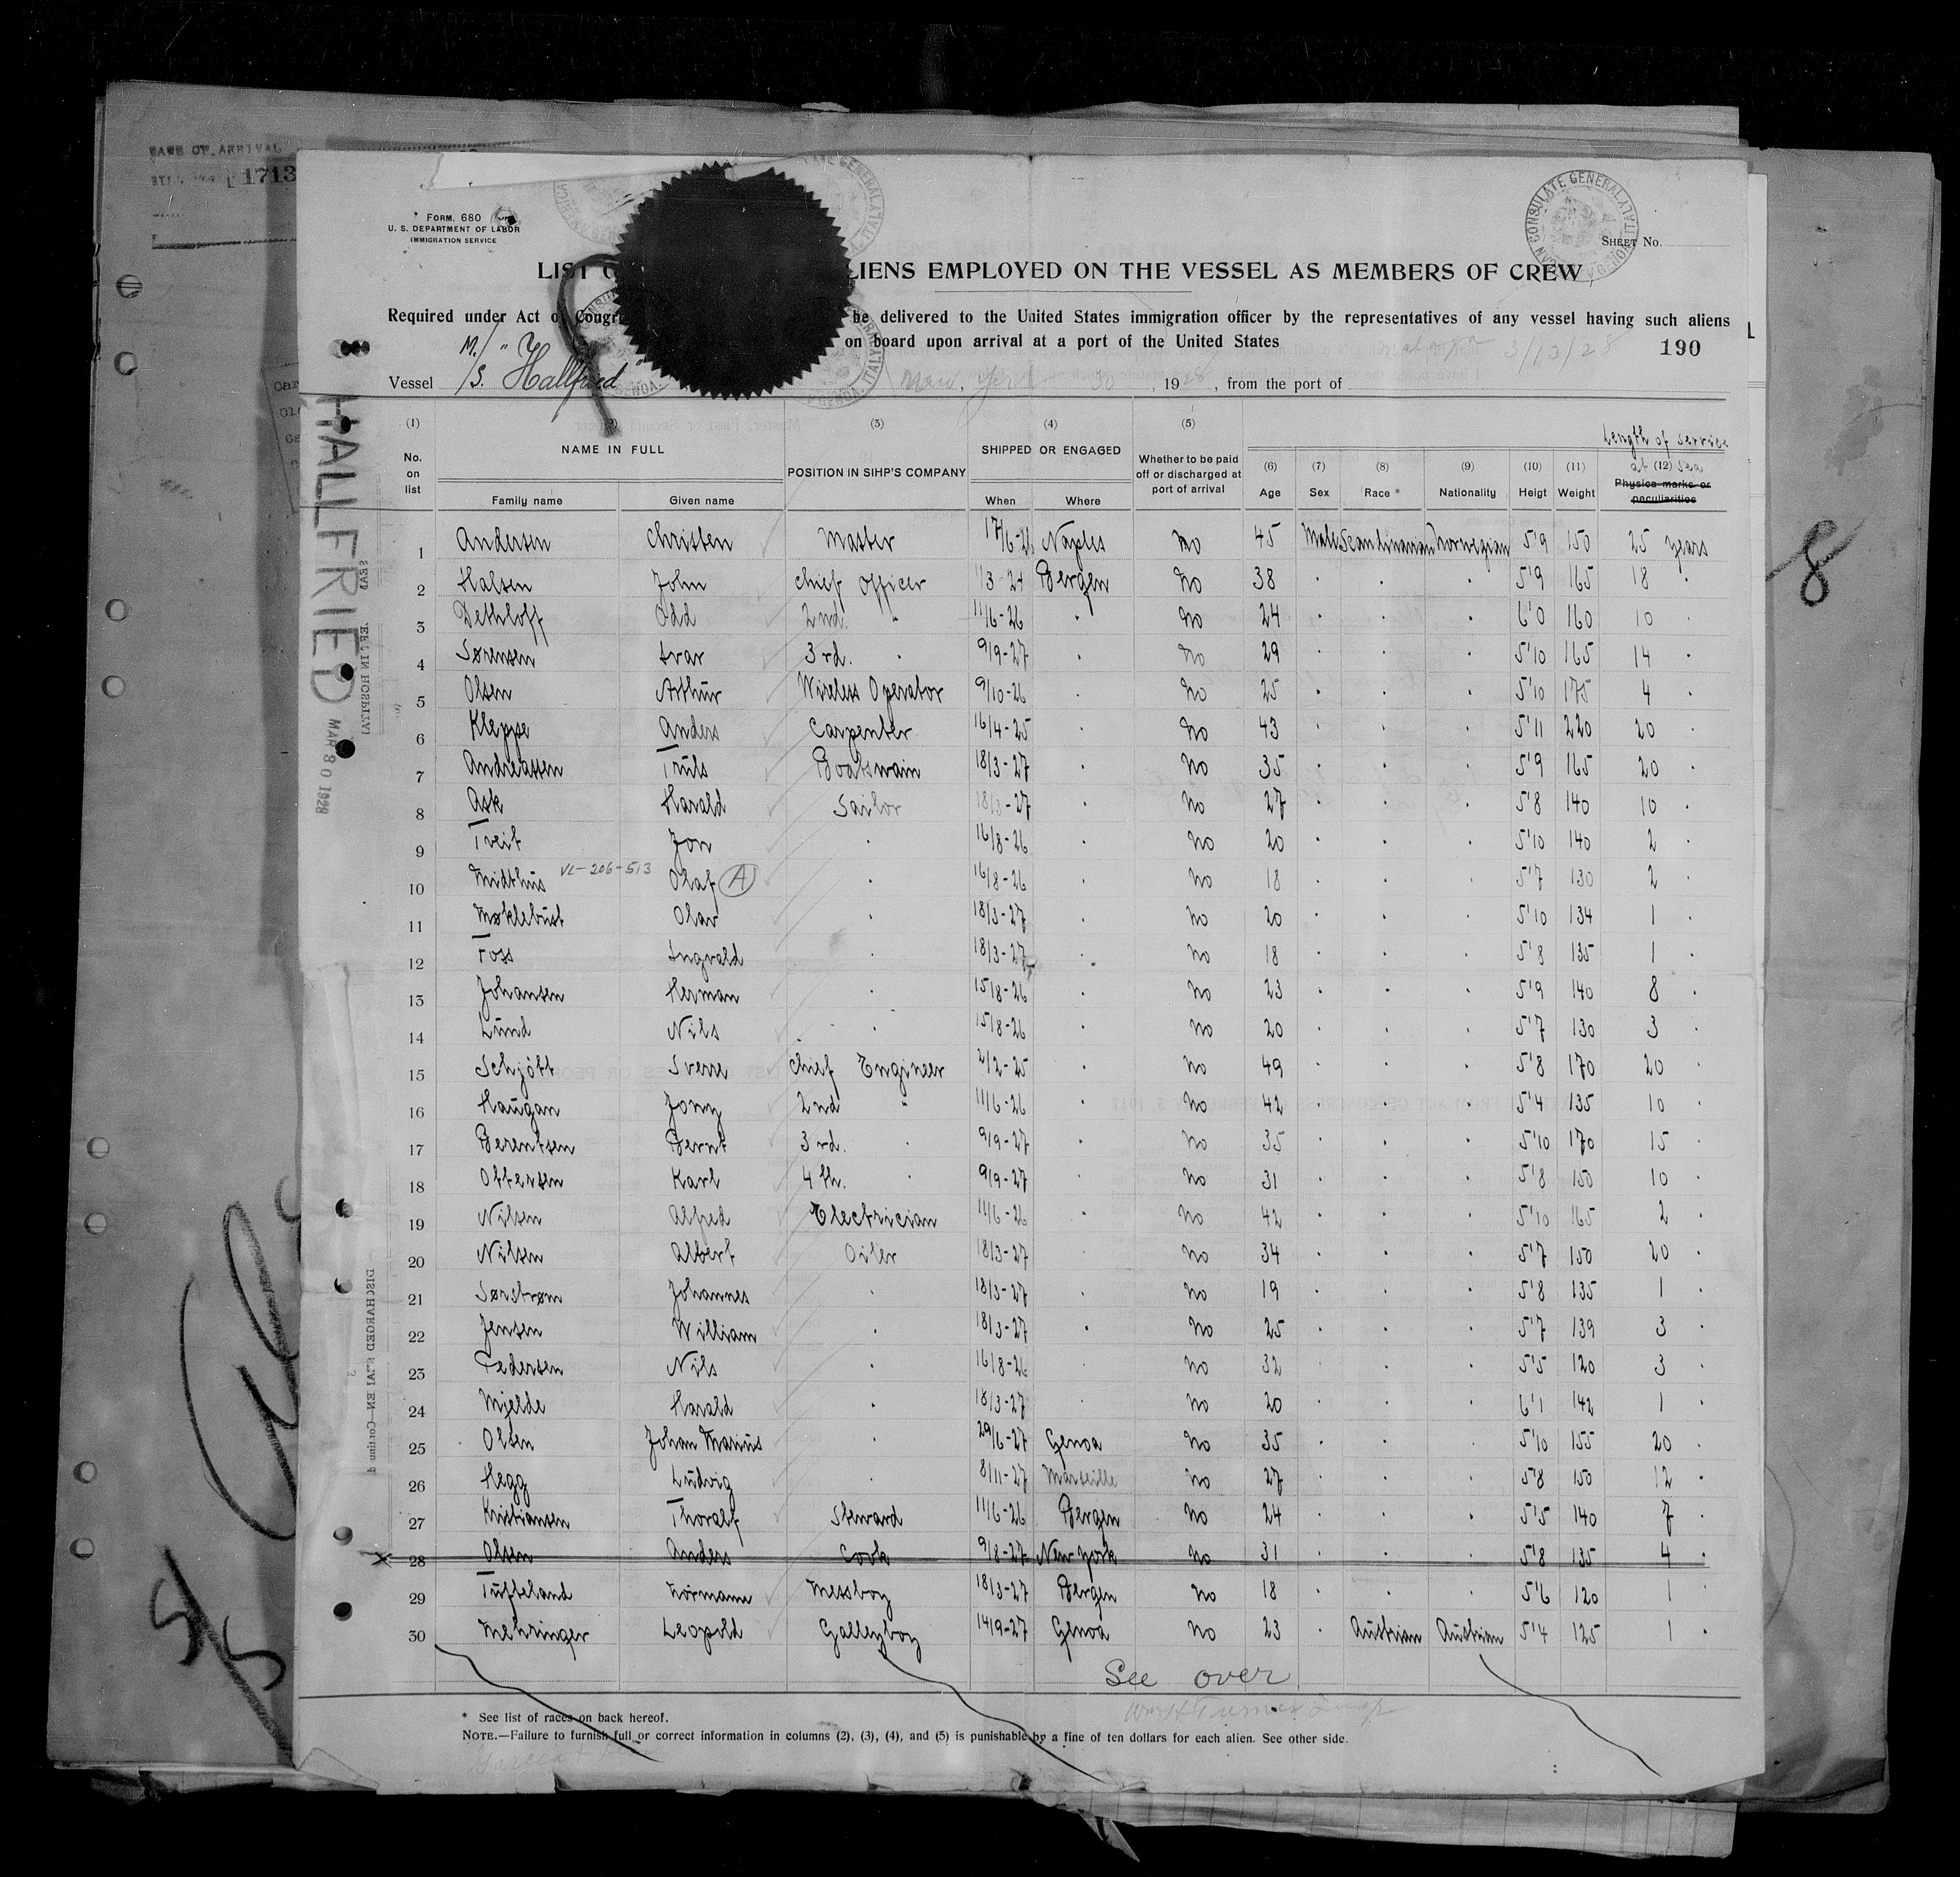 FORM. 680
U. S. DEPARTMENT OF LABOR
IMMIGRATION SERVICE
1713
SHEET No.
LIST LIENS EMPLOYED ON THE VESSEL AS MEMBERS OF CREW
Required under Act of Congre be delivered to the United States immigration officer by the representatives of any vessel having such aliens
on board upon arrival at a port of the United States
190
3/13/28
Vessel M./S. "Hallfried" New York 30, 1928, from the port of
HALLFRIED
MAR 30 1928
8
(1) No. on list
(2) NAME IN FULL Family name Given name
(3) POSITION IN SIHP'S COMPANY
(4) SHIPPED OR ENGAGED When Where
(5) Whether to be paid off or discharged at port of arrival
(6) Age
(7) Sex
(8) Race *
(9) Nationality
(10) Heigt
(11) Weight
Length of service at sea
(12) Physica marks or peculiarities
1 Andersen Christen Master 17/6-26 Naples No 45 Male Scandinavian Norwegian 5'9 150 25 years
2 Halsen John Chief Officer 1/3-24 Bergen No 38 . . . 5'9 165 18 "
3 Dethloff Odd 2nd. " 11/6-26 . No 24 . . . 6'0 160 10 .
4 Sørensen Ivar 3rd. . 9/9-27 . No 29 . . . 5'10 165 14 .
5 Olsen Arthur Wireless Operator 9/10-26 . No 25 . . . 5'10 175 4 .
6 Kleppe Anders Carpenter 16/4-25 . No 43 . . . 5'11 220 20 .
7 Andreassen Truls Boatswain 18/3-27 . No 35 . . . 5'9 165 20 .
8 Ask Harald Sailor 18/3-27 . No 27 . . . 5'8 140 10 .
9 Tveit Jon . 16/8-26 . No 20 . . . 5'10 140 2 .
10 Midthus VL-206-513 Olaf (A) . 16/8-26 . No 18 . . . 5'7 130 2 .
11 Møklebust Olav . 18/3-27 . No 20 . . . 5'10 134 1 .
12 Foss Ingvald . 18/3-27 . No 18 . . . 5'8 135 1 .
13 Johansen Herman . 15/8-26 . No 23 . . . 5'9 140 8 .
14 Lund Nils . 15/8-26 . No 20 . . . 5'7 130 3 .
15 Schjött Sverre Chief Engineer 2/2-25 . No 49 . . . 5'8 170 20 .
16 Haugan Jony 2nd " 11/6-26 . No 42 . . . 5'4 135 10 .
17 Berentsen Bernt 3rd. . 9/9-27 . No 35 . . . 5'10 170 15 .
18 Ottersen Karl 4th. . 9/9-27 . No 31 . . . 5'8 150 10 .
19 Nilsen Alfred Electrician 11/6-26 . No 42 . . . 5'10 165 2 .
20 Nilsen Albert Oiler 18/3-27 . No 34 . . . 5'7 150 20 .
21 Sørstrøm Johannes . 18/3-27 . No 19 . . . 5'8 135 1 .
22 Jensen William . 18/3-27 . No 25 . . . 5'7 139 3 .
23 Pedersen Nils . 16/8-26 . No 32 . . . 5'5 120 3 .
24 Mjelde Harald . 18/3-27 . No 20 . . . 6'1 142 1 .
25 Olsen Johan Marius . 29/6-27 Genoa No 35 . . . 5'10 155 20 .
26 Hegg Ludvig . 8/11-27 Marseille No 27 . . . 5'8 150 12 .
27 Kristiansen Thoralf Steward 11/6-26 Bergen No 24 . . . 5'5 140 7 .
X 28 Olsen Anders Cook 9/8-27 New York No 31 . . . 5'8 135 4 .
29 Tufteland Normann Messboy 18/3-27 Bergen No 18 . . . 5'6 120 1 .
30 Mehringer Leopold Galleyboy 14/9-27 Genoa No 23 . Austrian Austrian 5'4 125 1 .
See over
* See list of races on back hereof.
NOTE.—Failure to furnish full or correct information in columns (2), (3), (4), and (5) is punishable by a fine of ten dollars for each alien. See other side.